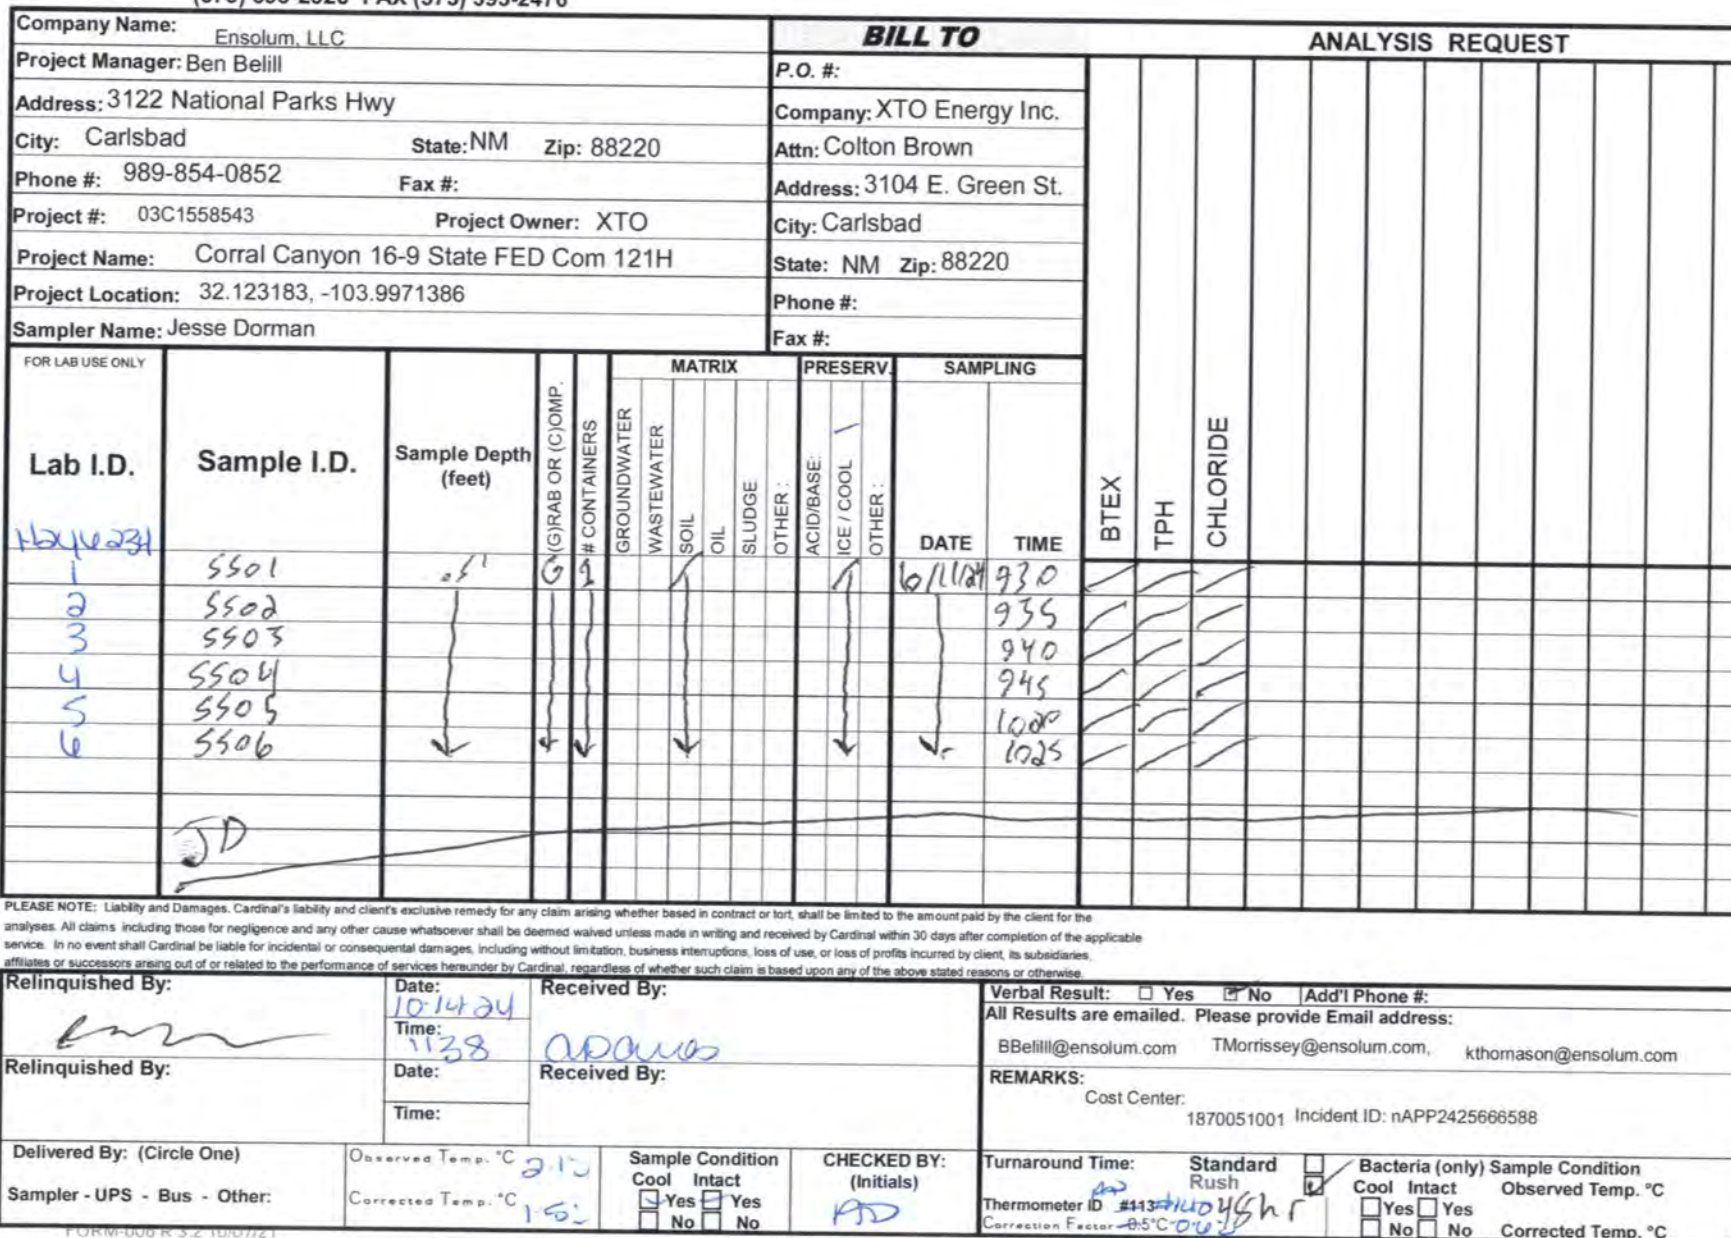 Company Name: Ensolum, LLC
Project Manager: Ben Belill
Address: 3122 National Parks Hwy
City: Carlsbad State: NM Zip: 88220
Phone #: 989-854-0852 Fax #:
Project #: 03C1558543 Project Owner: XTO
Project Name: Corral Canyon 16-9 State FED Com 121H
Project Location: 32.123183, -103.9971386
Sampler Name: Jesse Dorman
BILL TO
P.O. #:
Company: XTO Energy Inc.
Attn: Colton Brown
Address: 3104 E. Green St.
City: Carlsbad
State: NM Zip: 88220
Phone #:
Fax #:
ANALYSIS REQUEST
FOR LAB USE ONLY
MATRIX PRESERV. SAMPLING
Lab I.D. Sample I.D. Sample Depth (feet) (G)RAB OR (C)OMP. # CONTAINERS GROUNDWATER WASTEWATER SOIL OIL SLUDGE OTHER : ACID/BASE: ICE / COOL OTHER : DATE TIME BTEX TPH CHLORIDE
1 SS01 .5' G 1 930
2 SS02 935
3 SS03 940
4 SS04 945
5 SS05 1020
6 SS06 1025
JD
PLEASE NOTE: Liability and Damages. Cardinal's liability and client's exclusive remedy for any claim arising whether based in contract or tort, shall be limited to the amount paid by the client for the
analyses. All claims including those for negligence and any other cause whatsoever shall be deemed waived unless made in writing and received by Cardinal within 30 days after completion of the applicable
service. In no event shall Cardinal be liable for incidental or consequental damages, including without limitation, business interruptions, loss of use, or loss of profits incurred by client, its subsidiaries,
affiliates or successors arising out of or related to the performance of services hereunder by Cardinal, regardless of whether such claim is based upon any of the above stated reasons or otherwise.
Relinquished By: Date: 10-14-24 Received By:
Time: 1138
Relinquished By: Date: Received By:
Time:
Verbal Result: Yes No Add'l Phone #:
All Results are emailed. Please provide Email address:
BBelilll@ensolum.com TMorrissey@ensolum.com, kthomason@ensolum.com
REMARKS:
Cost Center:
1870051001 Incident ID: nAPP2425666588
Delivered By: (Circle One)
Sampler - UPS - Bus - Other:
Observed Temp. °C 2.1
Corrected Temp. °C 1.5
Sample Condition
Cool Intact
Yes Yes
No No
CHECKED BY:
(Initials)
AD
Turnaround Time: Standard
Rush
Thermometer ID #113 #140 48hr
Correction Factor -0.5°C
Bacteria (only) Sample Condition
Cool Intact Observed Temp. °C
Yes Yes
No No Corrected Temp. °C
FORM-006 R 3.2 10/07/21